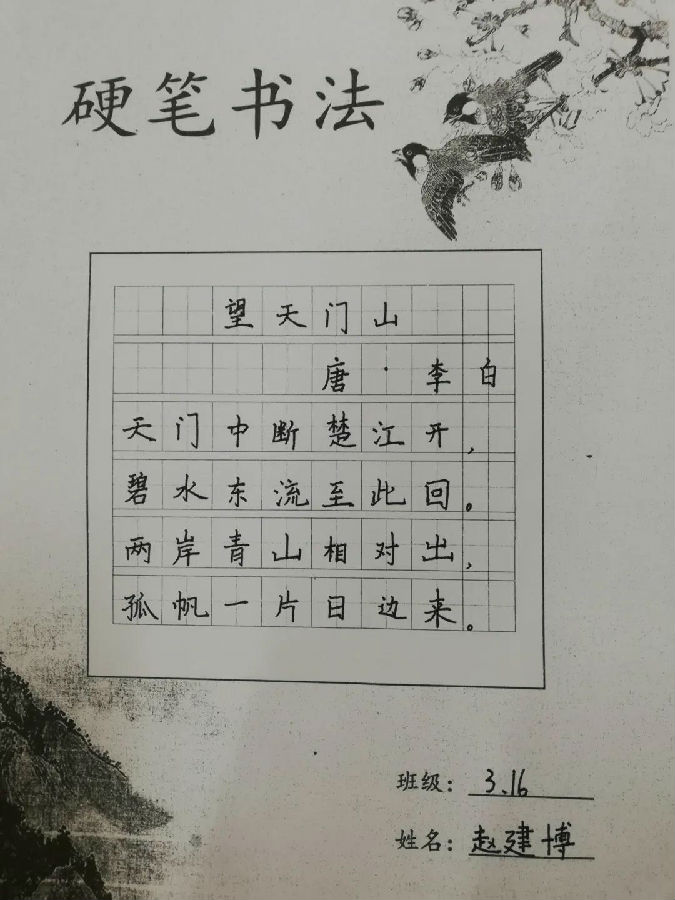 硬笔书法
望天门山
唐·李白
天门中断楚江开，
碧水东流至此回。
两岸青山相对出，
孤帆一片日边来。
班级：3.16
姓名：赵建博